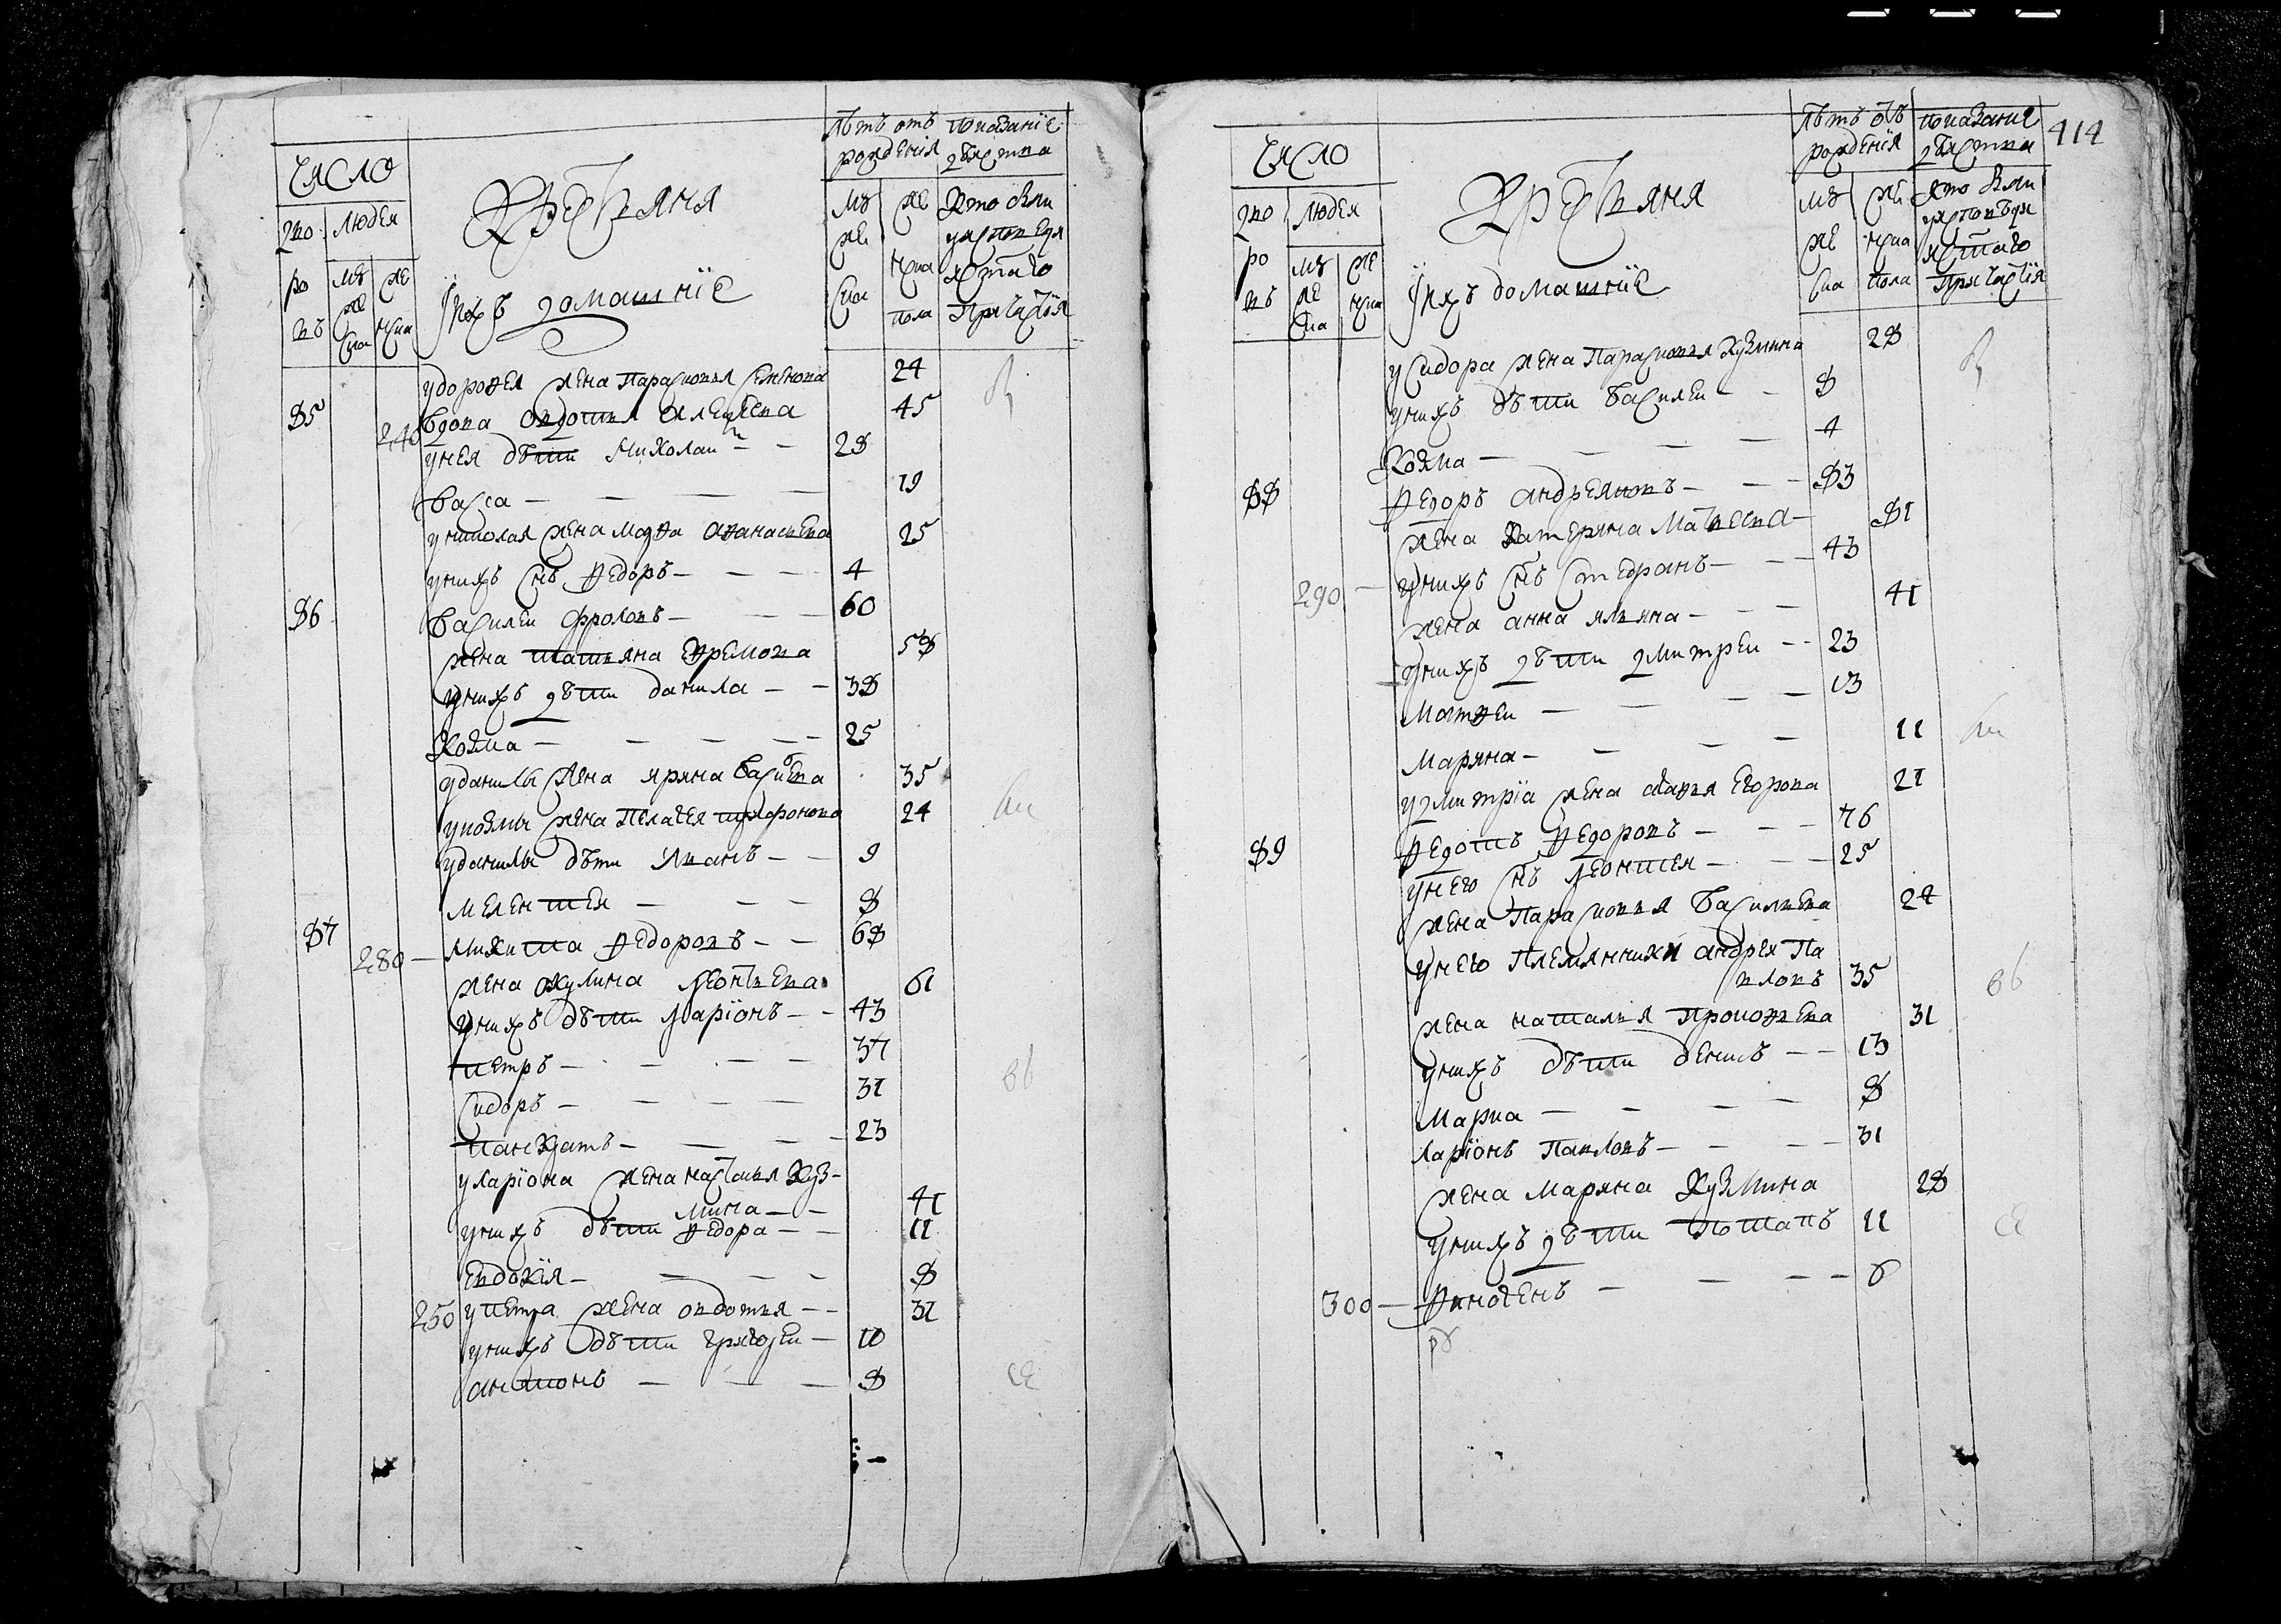 Число
Дво
ро
въ
Людей
Му
же
ска
Же
нска
Крестьяня
И ихъ домашніе
Лѣтъ отъ
рожденія
Му
же
ска
Же
нска
пола
Показаніе
действа
Кто были
у исповеди
и стаго
Причастія
у дорофея жена Парасковья Семенова 24
85 240 Вдова Овдотья Алексеева 45
у нея дѣти Николай 28
Васса 19
у николая жена Марфа Афанасьева 25
у нихъ снъ Федоръ 4
86 Василеи Фроловъ 60
жена Татьяна Ефремова 58
у нихъ дѣти Данила 38
Козма 25
у данилы жена Ирина Василева 35
у козмы жена Пелагея Тихоронова 24
у данилы дѣти Иванъ 9
Мелентеи 8
87 280 Никита Федоровъ 68
жена Окулина Леонтьева 61
у нихъ дѣти Ларіонъ 43
Петръ 37
Сидоръ 31
Панкратъ 23
у ларіона жена настасья Куз-
мина 41
у нихъ дѣти Федора 11
Евдокія 8
250 у петра жена овдотья 31
у нихъ дѣти Григореи 10
антонъ 8
414
Число
Дво
ро
въ
Людей
Му
же
ска
Же
нска
Крестьяня
И ихъ домашніе
Лѣтъ отъ
рожденія
Му
же
ска
Же
нска
пола
Показание
действа
Кто были
у исповѣди
и стаго
Причастія
у Сидора жена Парасковья Кузмина 28
у нихъ дѣти Василеи 8
Козма 4
88 Федоръ андреяновъ 83
жена Катерина Матвеева 81
290 у нихъ снъ Стефанъ 43
жена анна ильина 41
у нихъ дѣти дмитреи 23
Матфеи 13
Марина 11
у дмитрія жена Егорова 21
89 Федотъ Федоровъ 76
у него снъ Леонтеи 25
жена Парасковья Васильева 24
у него Племянники андреи Па
вловъ 35
жена наталья Прокофьева 31
у нихъ дѣти денисъ 13
Мариа 8
Ларіонъ Павловъ 31
жена Марина Кузмина 28
у нихъ дѣти Потапъ 11
300 Финогенъ 6
рб